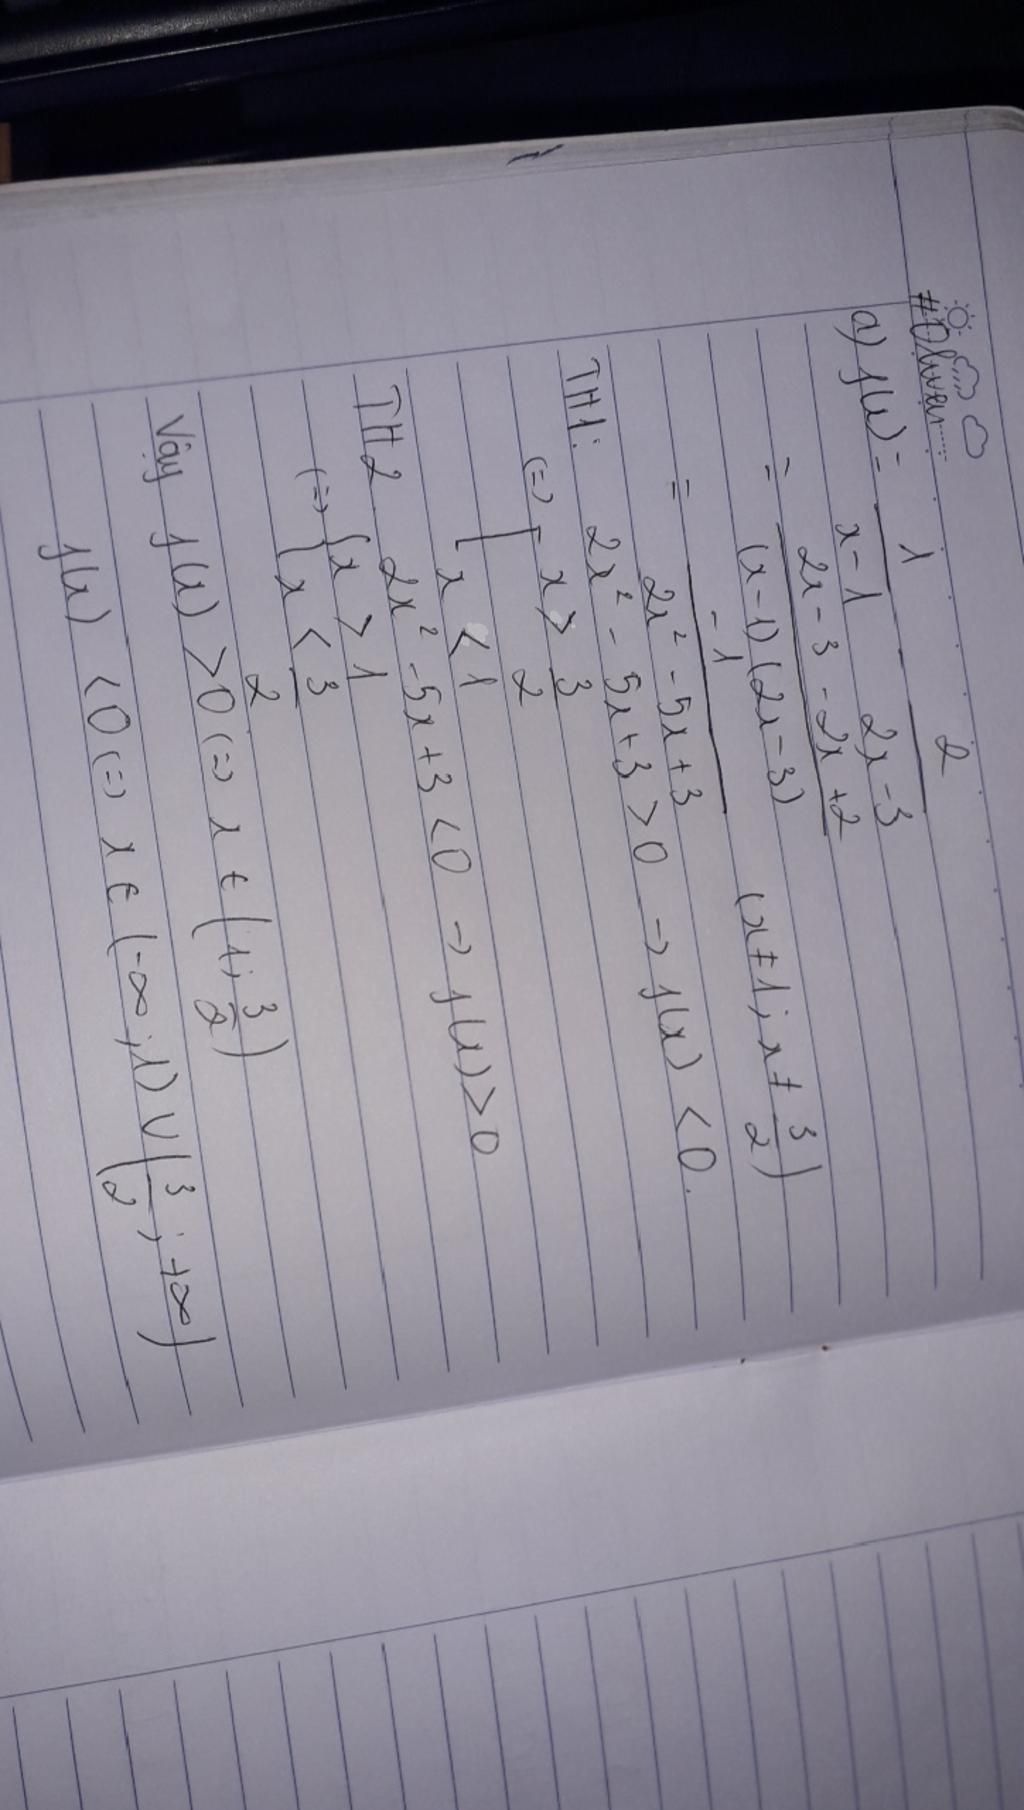 #Oliver
a) f(x) = 1/(x-1) - 2/(2x-3)
= (2x-3-2x+2)/((x-1)(2x-3)) (x≠1; x≠3/2)
= -1/(2x²-5x+3)
TH1: 2x²-5x+3 > 0 → f(x) < 0.
(=) [ x > 3/2
x < 1
TH2 2x²-5x+3 < 0 → f(x) > 0
(=) { x > 1
{ x < 3/2
Vậy f(x) > 0 (=) x ∈ (1; 3/2)
f(x) < 0 (=) x ∈ (-∞; 1) ∪ (3/2; +∞)